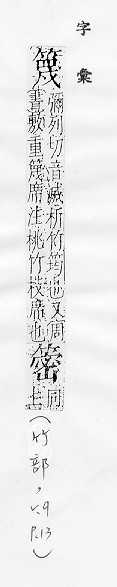 字彙
篾
彌列切音滅析竹筠也又周
書敷重篾席注桃竹枝席也
同
上
(竹部, v.9 p.13)